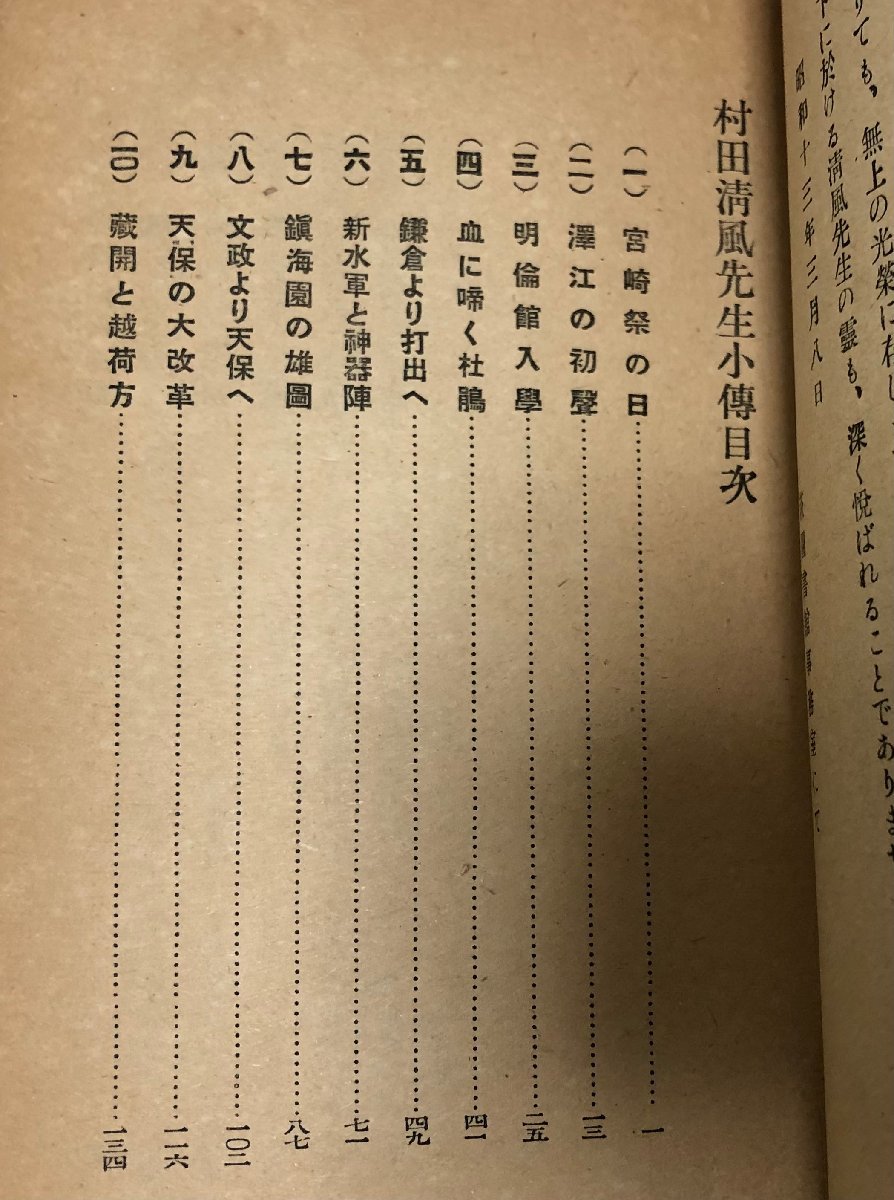 りても、無上の光榮に存じ
下に於ける淸風先生の靈も、深く悅ばれることであります
昭和十三年三月八日
圖書館事務室にて
村田淸風先生小傳目次
（一）宮崎祭の日……一
（二）澤江の初聲……一三
（三）明倫館入學……二五
（四）血に啼く杜鵑……四一
（五）鎌倉より打出へ……四九
（六）新水軍と神器陣……七一
（七）鎭海園の雄圖……八七
（八）文政より天保へ……一〇二
（九）天保の大改革……一一六
（一〇）藏開と越荷方……一三四